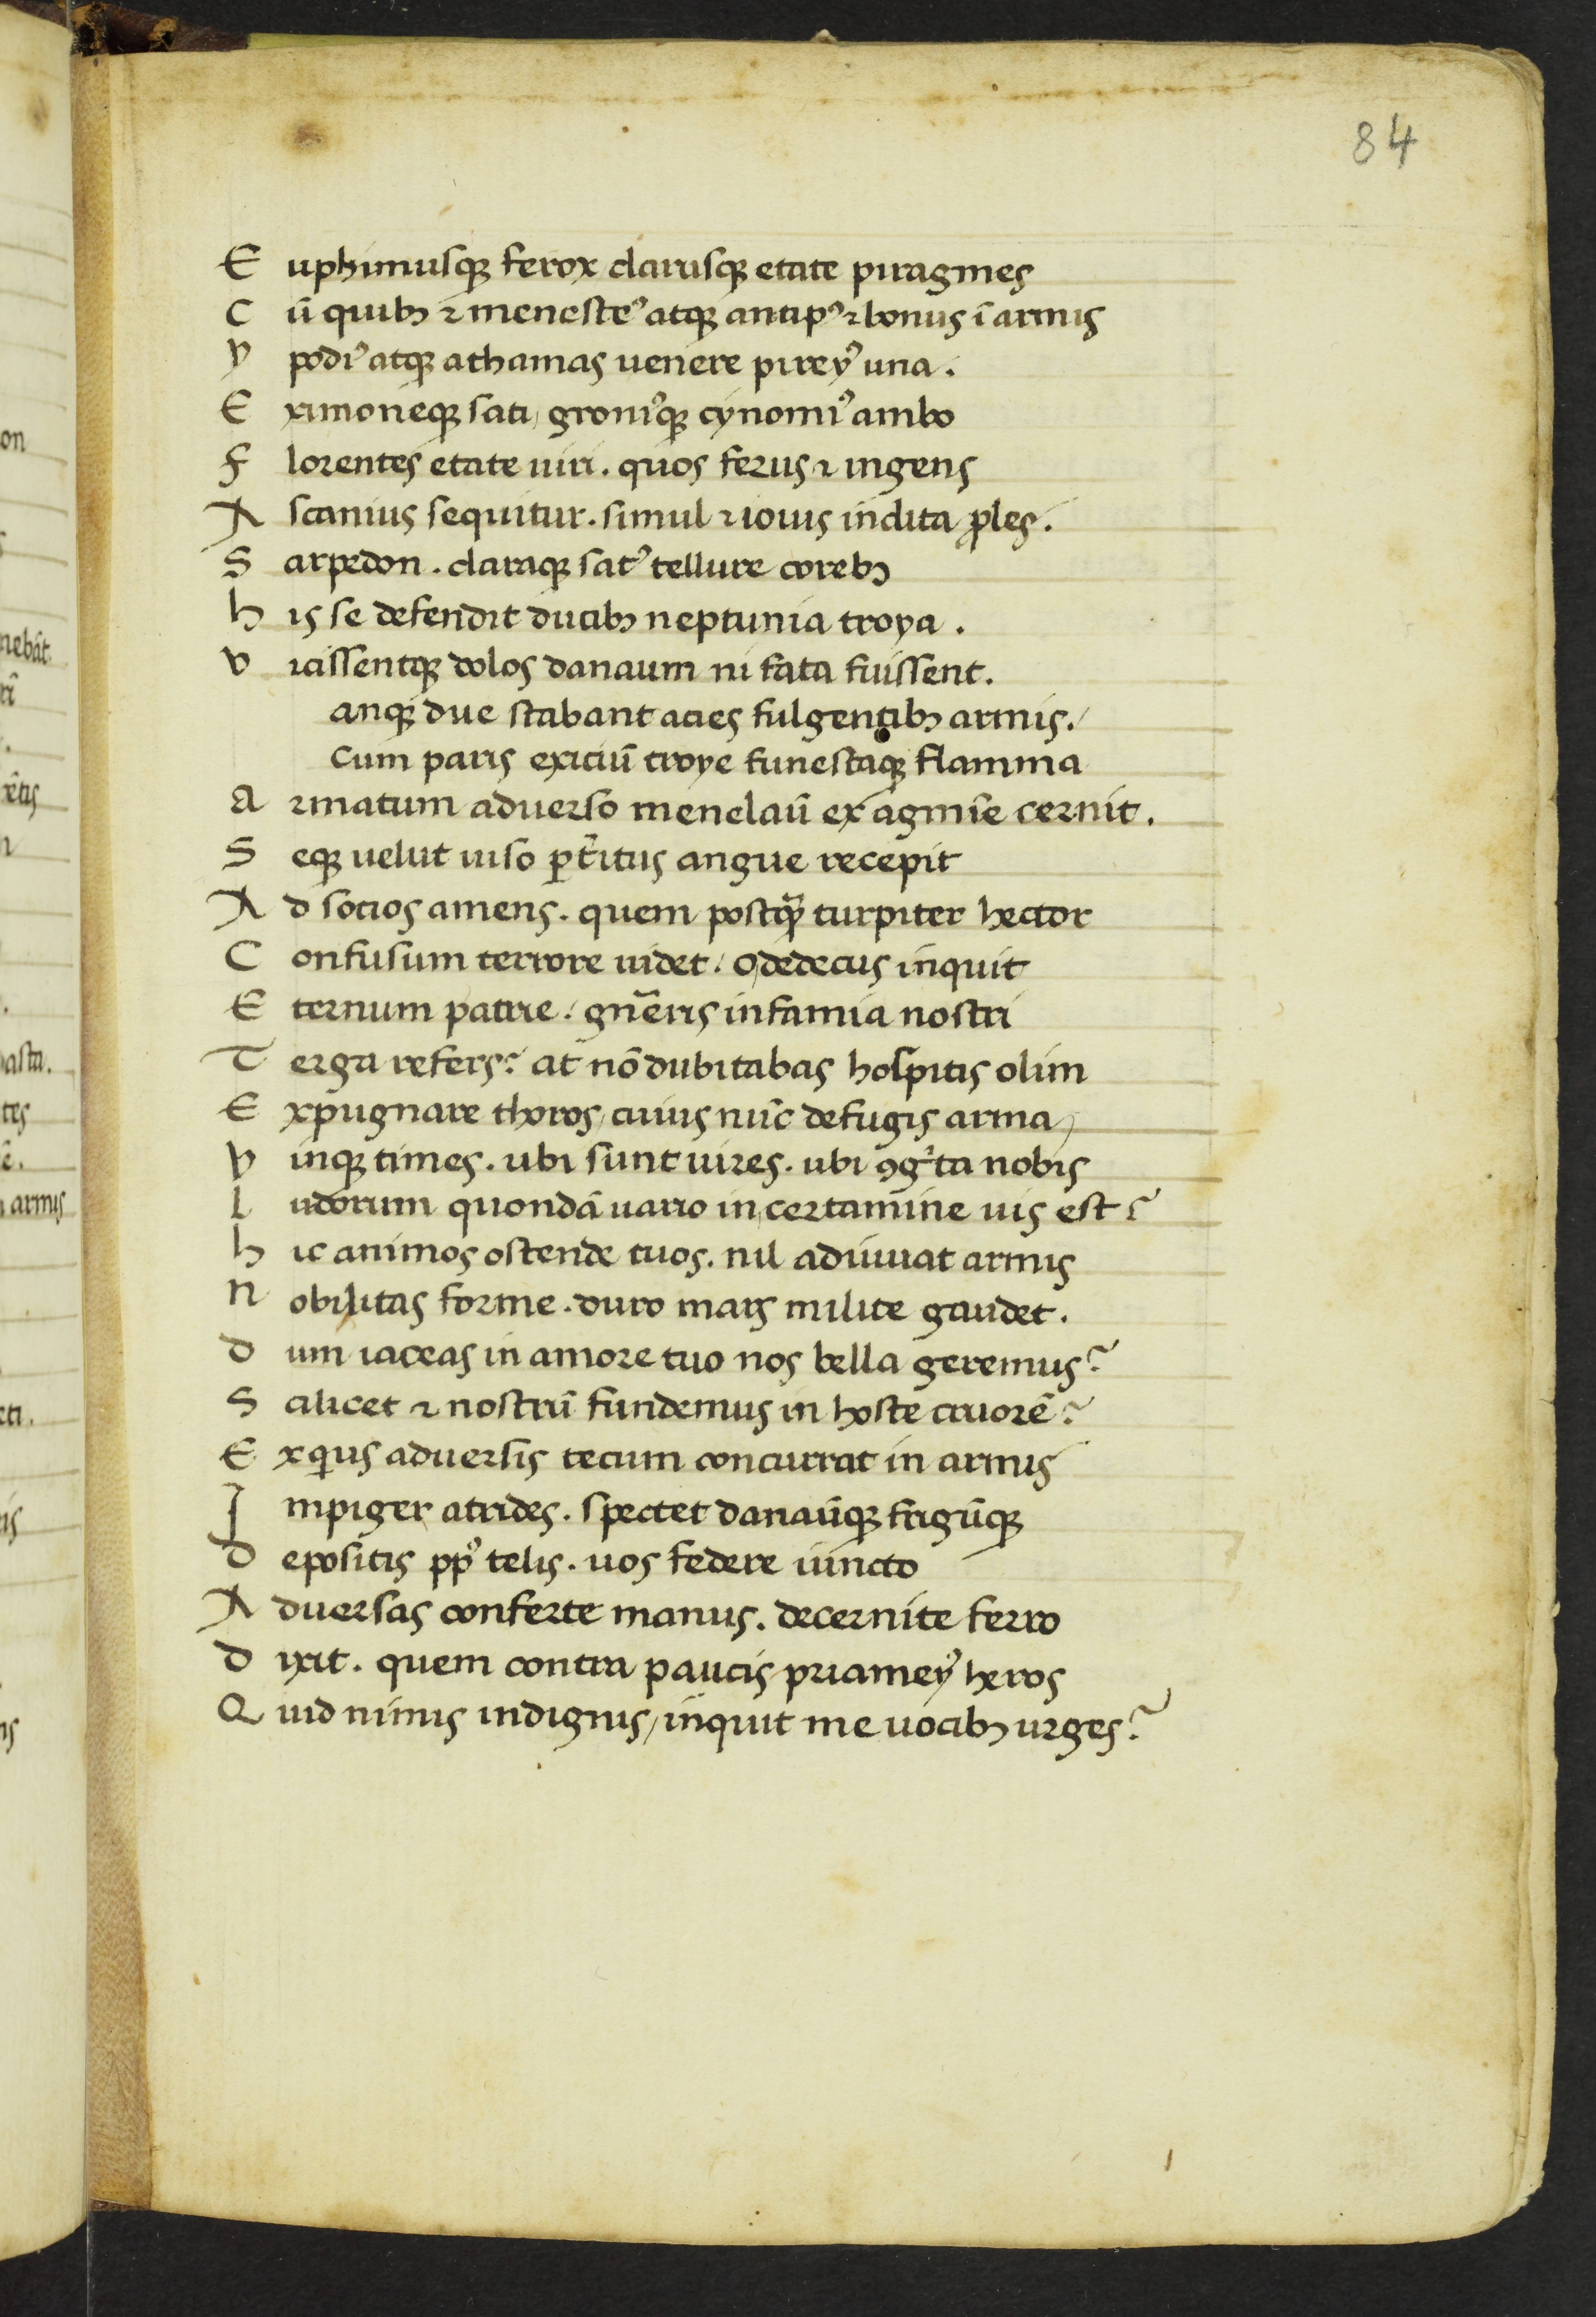 84
E uphimusqꝫ ferox clarusqꝫ etate piragmes
C ū quibꝫ ⁊ menesteꝰ atqꝫ antipꝰ ⁊ bonus ī armis
V podiꝰ atqꝫ athamas uenere pireyꝰ una.
E ximoneqꝫ sati/ groniꝰqꝫ cynomiꝰ ambo
F lorentes etate uiri. quos ferus ⁊ ingens
A scanius sequitur. simul ⁊ iouis inclita ꝓles.
S arpedon. claraqꝫ satꝰ tellure corebꝫ
h is se defendit ducibꝫ neptunia troya.
V icissentqꝫ dolos danaum ni fata fuissent.
anqꝫ due stabant acies fulgentibꝫ armis./
Cum paris exiciū troye funestaqꝫ flamma
A rmatum aduerso menelaū ex agmīe cernit.
S eqꝫ uelut uiso ꝑt̄itus angue recepit
A d socios amens. quem postqꝫ̄ turpiter hector
C onfusum terrore uidet. o dedecus inquit
E ternum patrie. gn̄eris infamia nostri
T erga refers? at nō dubitabas hospitis olim
E xpugnare thoros/ cuius nūc defugis arma/
V inqꝫ times. ubi sunt uires. ubi ꝯgⁱta nobis
l udorum quondā uario in certamine uis est?
h ic animos ostende tuos. nil adiuuat armis
N obilitas forme. duro mars milite gaudet.
D um iaceas in amore tuo nos bella geremus?
S cilicet ⁊ nostrū fundemus in hoste cruorē?
E xqͥus aduersis tecum concurrat in armis
I mpiger atrides. spectet danaūqꝫ frigūqꝫ
D epositis ppꝉs telis. uos federe iuncto
A duersas conferte manus. decernite ferro
D ixit. quem contra paucis priameyꝰ heros
Q uid nimis indignis/ inquit me uocibꝫ urges?